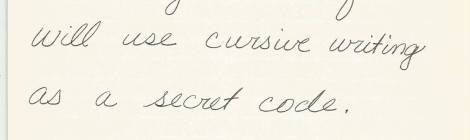 will use cursive writing
as a secret code.